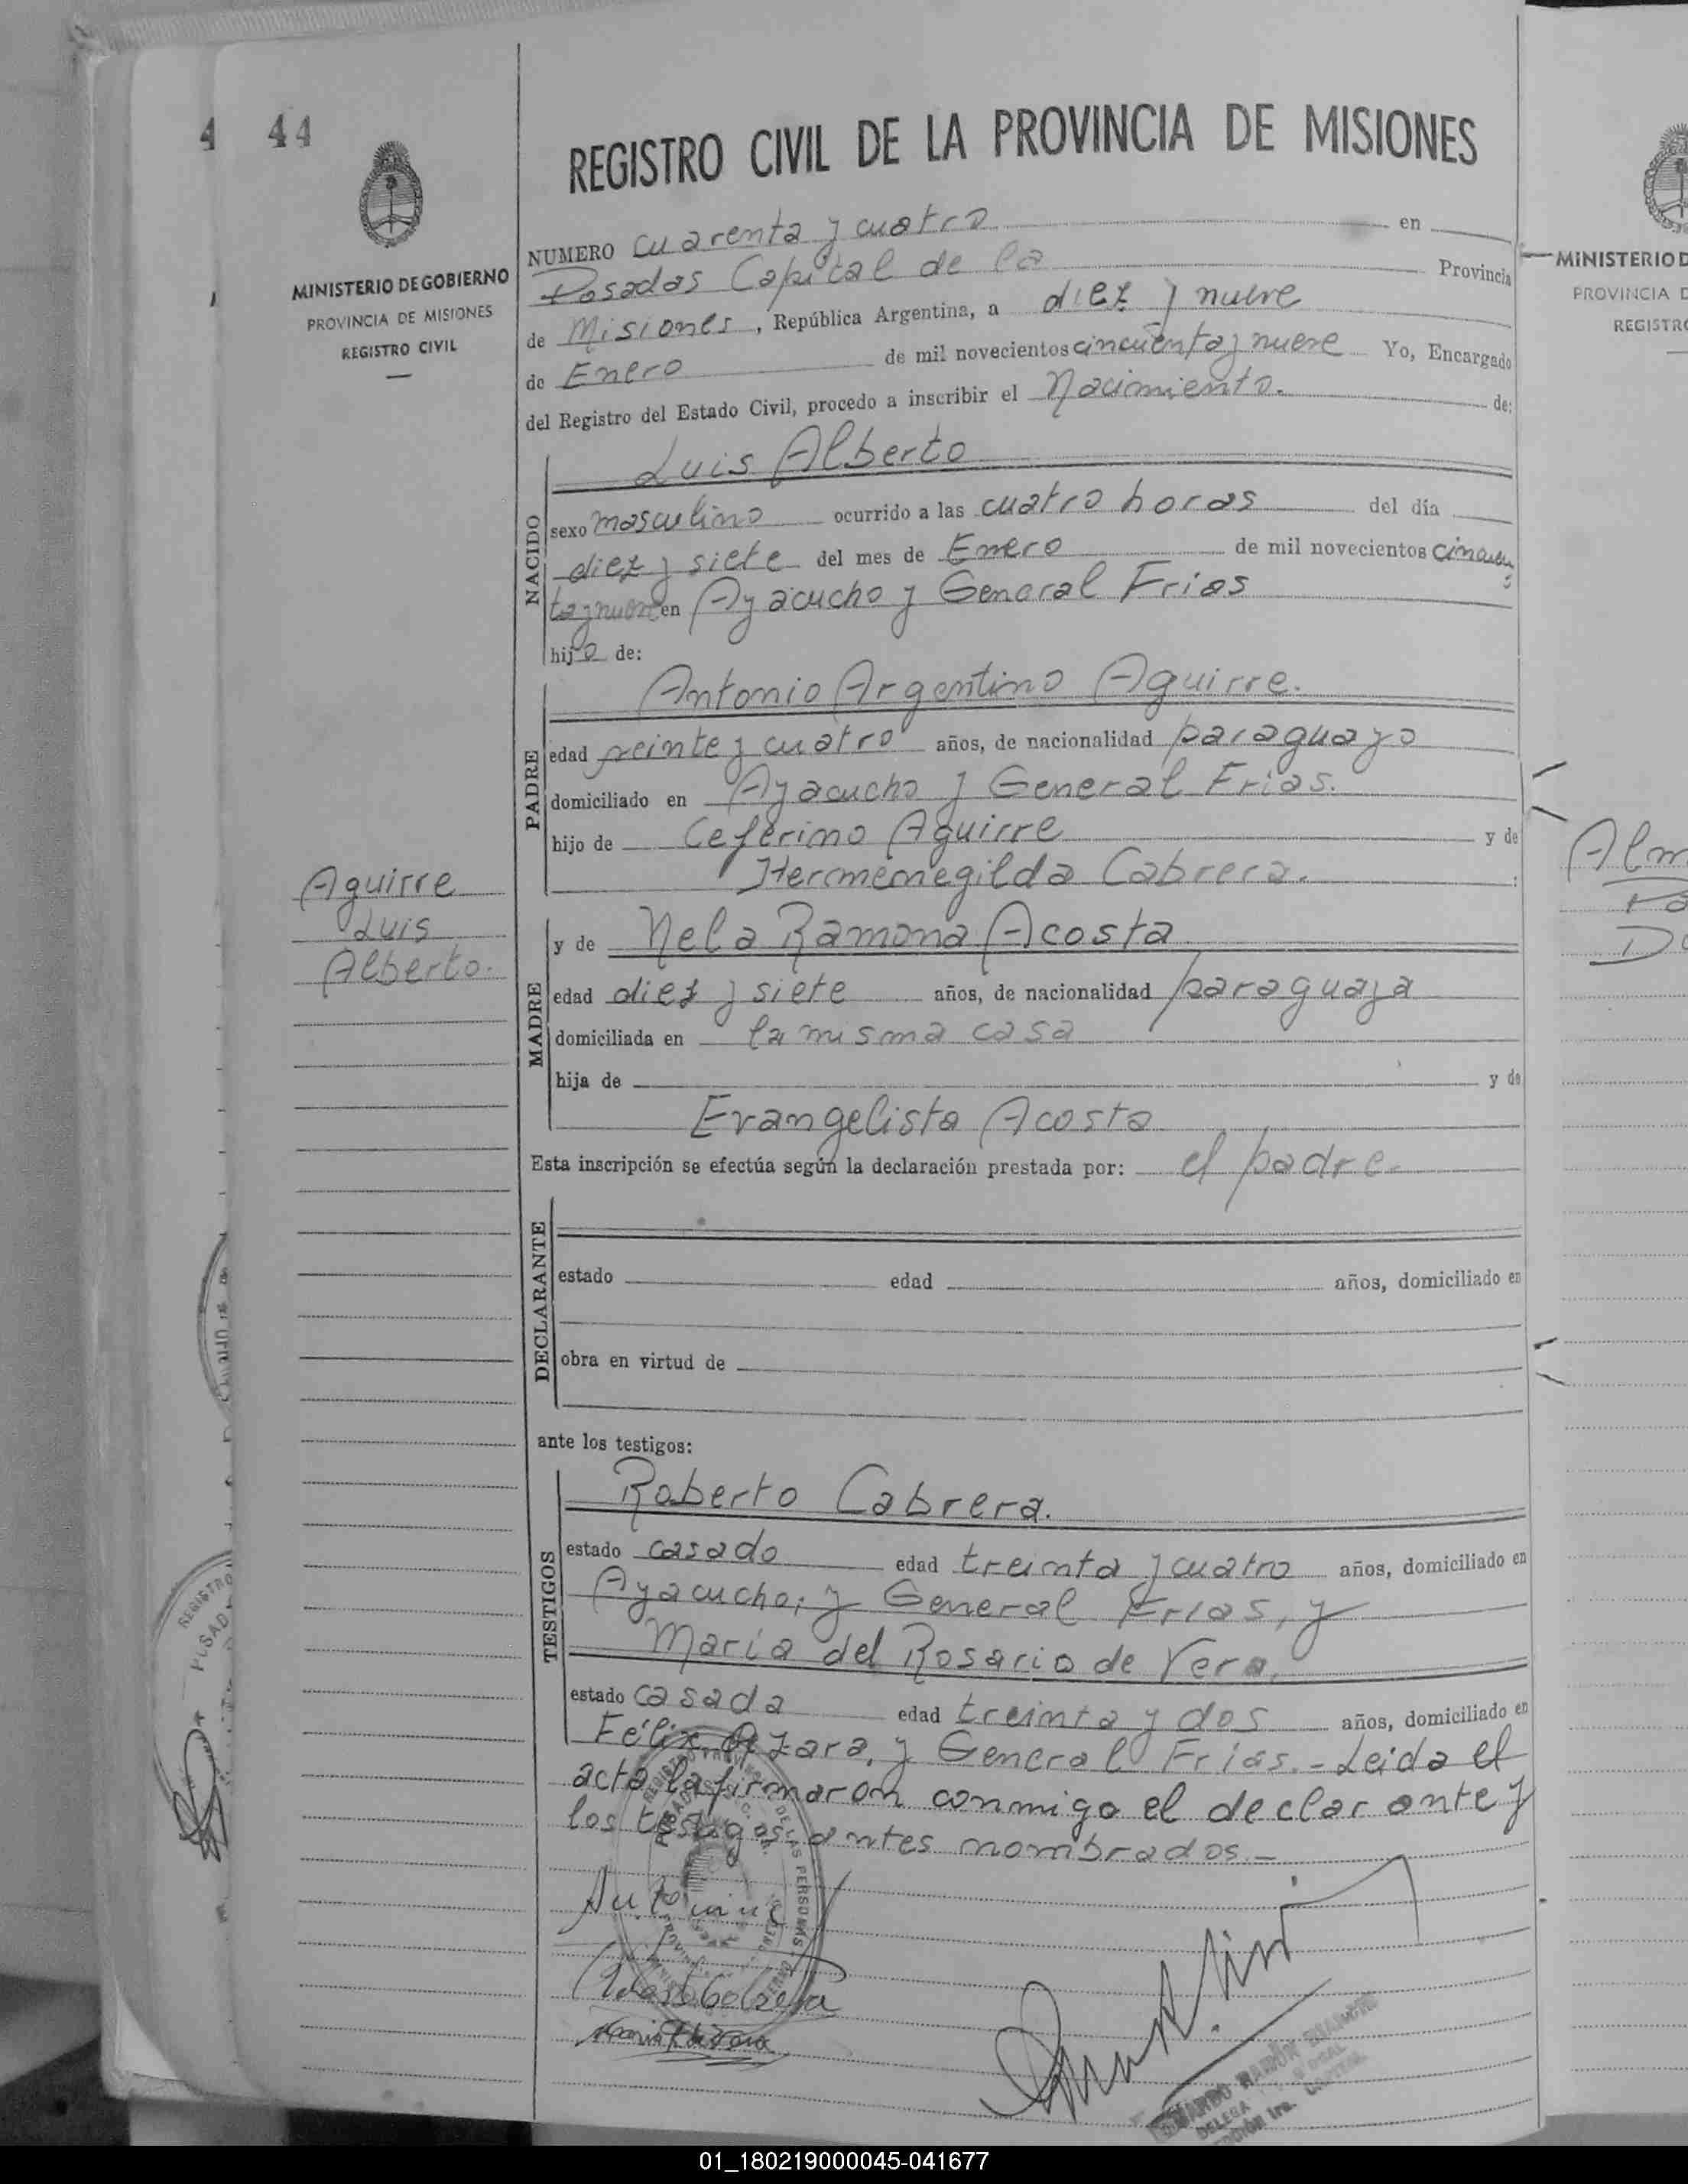 4 44
REGISTRO CIVIL DE LA PROVINCIA DE MISIONES
MINISTERIO DE GOBIERNO
PROVINCIA DE MISIONES
REGISTRO CIVIL
NUMERO cuarenta y cuatro en
Posadas Capital de la Provincia
de Misiones, República Argentina, a diez y nueve
de Enero de mil novecientos cincuenta y nueve Yo, Encargado
del Registro del Estado Civil, procedo a inscribir el Nacimiento. de:
NACIDO
Luis Alberto
sexo masculino ocurrido a las cuatro horas del día
diez y siete del mes de Enero de mil novecientos cincuen
ta y nueve en Ayacucho y General Frias
hijo de:
PADRE
Antonio Argentino Aguirre.
edad veinte y cuatro años, de nacionalidad paraguayo
domiciliado en Ayacucho y General Frias.
hijo de Ceferino Aguirre y de
Hermenegilda Cabrera.
Aguirre
Luis
Alberto.
MADRE
y de Nela Ramona Acosta
edad diez y siete años, de nacionalidad paraguaya
domiciliada en la misma casa
hija de y de
Evangelista Acosta
Esta inscripción se efectúa según la declaración prestada por: el padre.
DECLARANTE
estado edad años, domiciliado en
obra en virtud de
ante los testigos:
TESTIGOS
Roberto Cabrera.
estado casado edad treinta y cuatro años, domiciliado en
Ayacucho; y General Frias, y
Maria del Rosario de Vera.
estado casada edad treinta y dos años, domiciliado en
Félix Azara, y General Frias.- Leida el
acta la firmaron conmigo el declarante y
los testigos antes nombrados.-
MINISTERIO D
PROVINCIA D
REGISTR
Alm
01_180219000045-041677